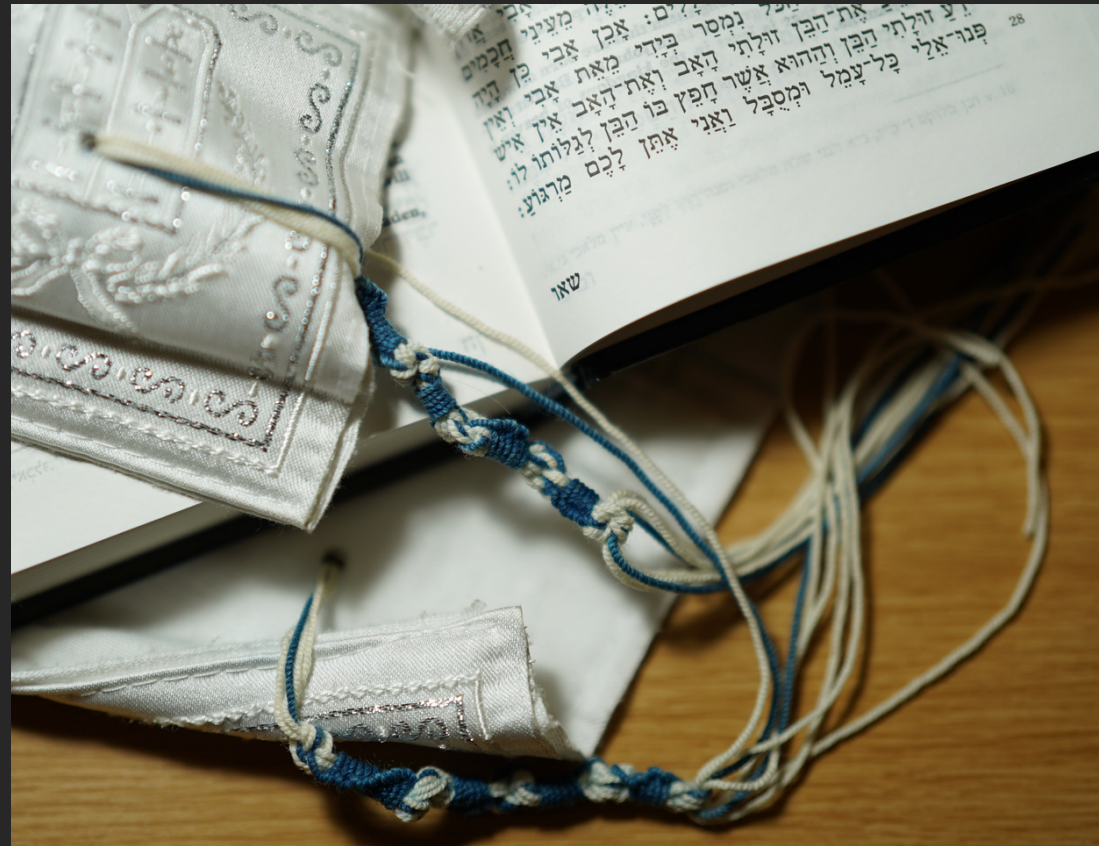 מֵעֵינֵי חֲכָמִים
אָכֵן אָבִי כֵּן הָיָה
נִמְסַר בְּיָדִי מֵאֵת אָבִי וְאֵין
אֶת־הַבֵּן זוּלָתִי הָאָב וְאֶת־הָאָב אֵין אִישׁ
זוּלָתִי הַבֵּן וְהַהוּא אֲשֶׁר חָפֵץ בּוֹ הַבֵּן לְגַלּוֹתוֹ לוֹ:
28 פְּנוּ־אֵלַי כָּל־עָמֵל וּמְסֻבָּל וַאֲנִי אֶתֵּן לָכֶם מַרְגּוֹעַ:
שאו